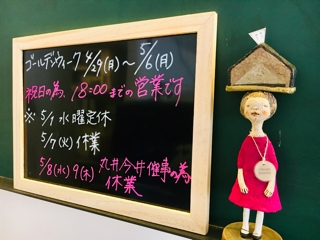 ゴールデンウィーク 4/29(月)～5/6(月)
祝日の為、18:00までの営業です
※ 5/1 水曜定休
5/7(火) 休業
5/8(水) 9(木) 丸井今井催事の為
休業